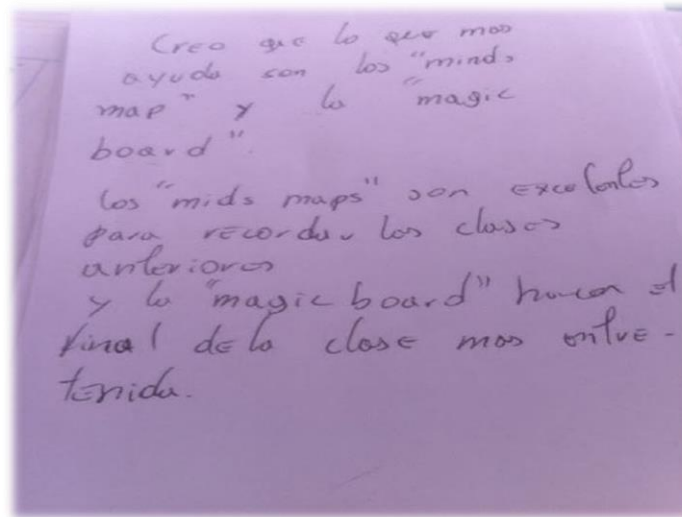 Creo que lo que mas
ayuda son los "minds
map" y la "magic
board".
los "mids maps" son excelentes
para recordar las clases
anteriores
y la "magic board" hacen el
final de la clase mas entre-
tenida.